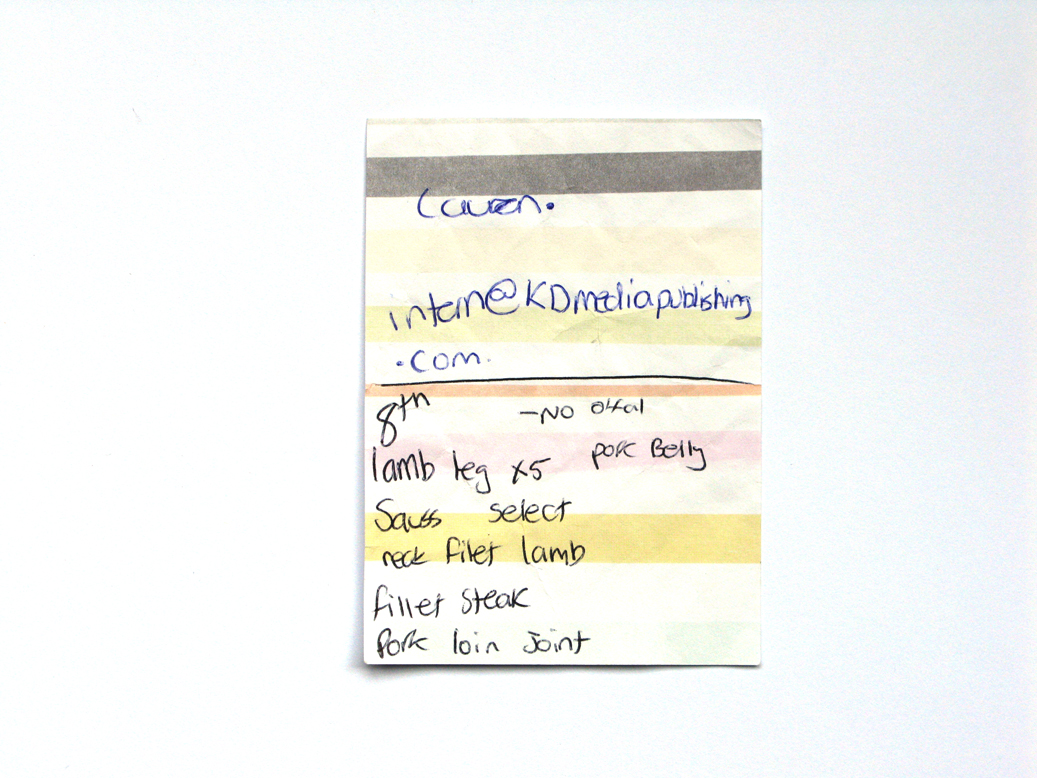 Lauren.
intern@KDmediapublishing
.com.
8th -NO offal
lamb leg x5 pork Belly
Sauss select
neck filet lamb
fillet steak
Pork loin joint